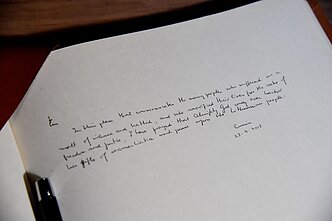 In this place that commemorates the many people who suffered as a
result of violence and hatred, and who sacrificed their lives for the sake of
freedom and justice, I have prayed that Almighty God may ever bestow
his gifts of reconciliation and peace upon the Lithuanian people.
23.9.2018